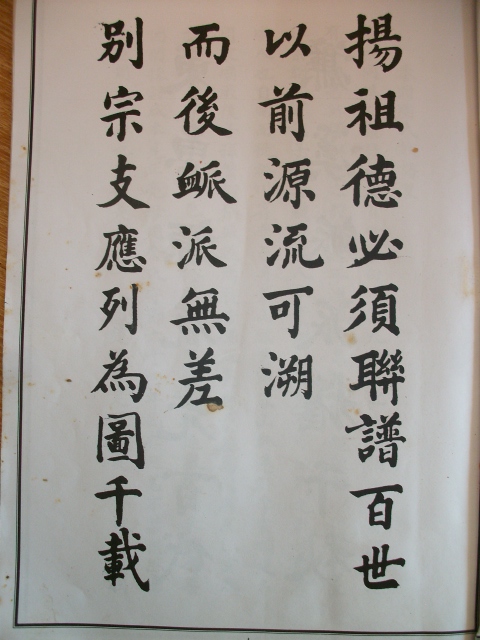 揚祖德必須聯譜百世
以前源流可溯
別宗支應列為圖千載
而後衇派無差